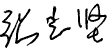 张志坚